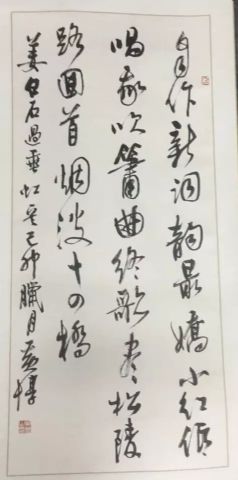 自作新词韵最娇小红低
唱我吹箫曲终歌尽松陵
路回首烟波十四桥
姜白石過垂虹 己卯臘月